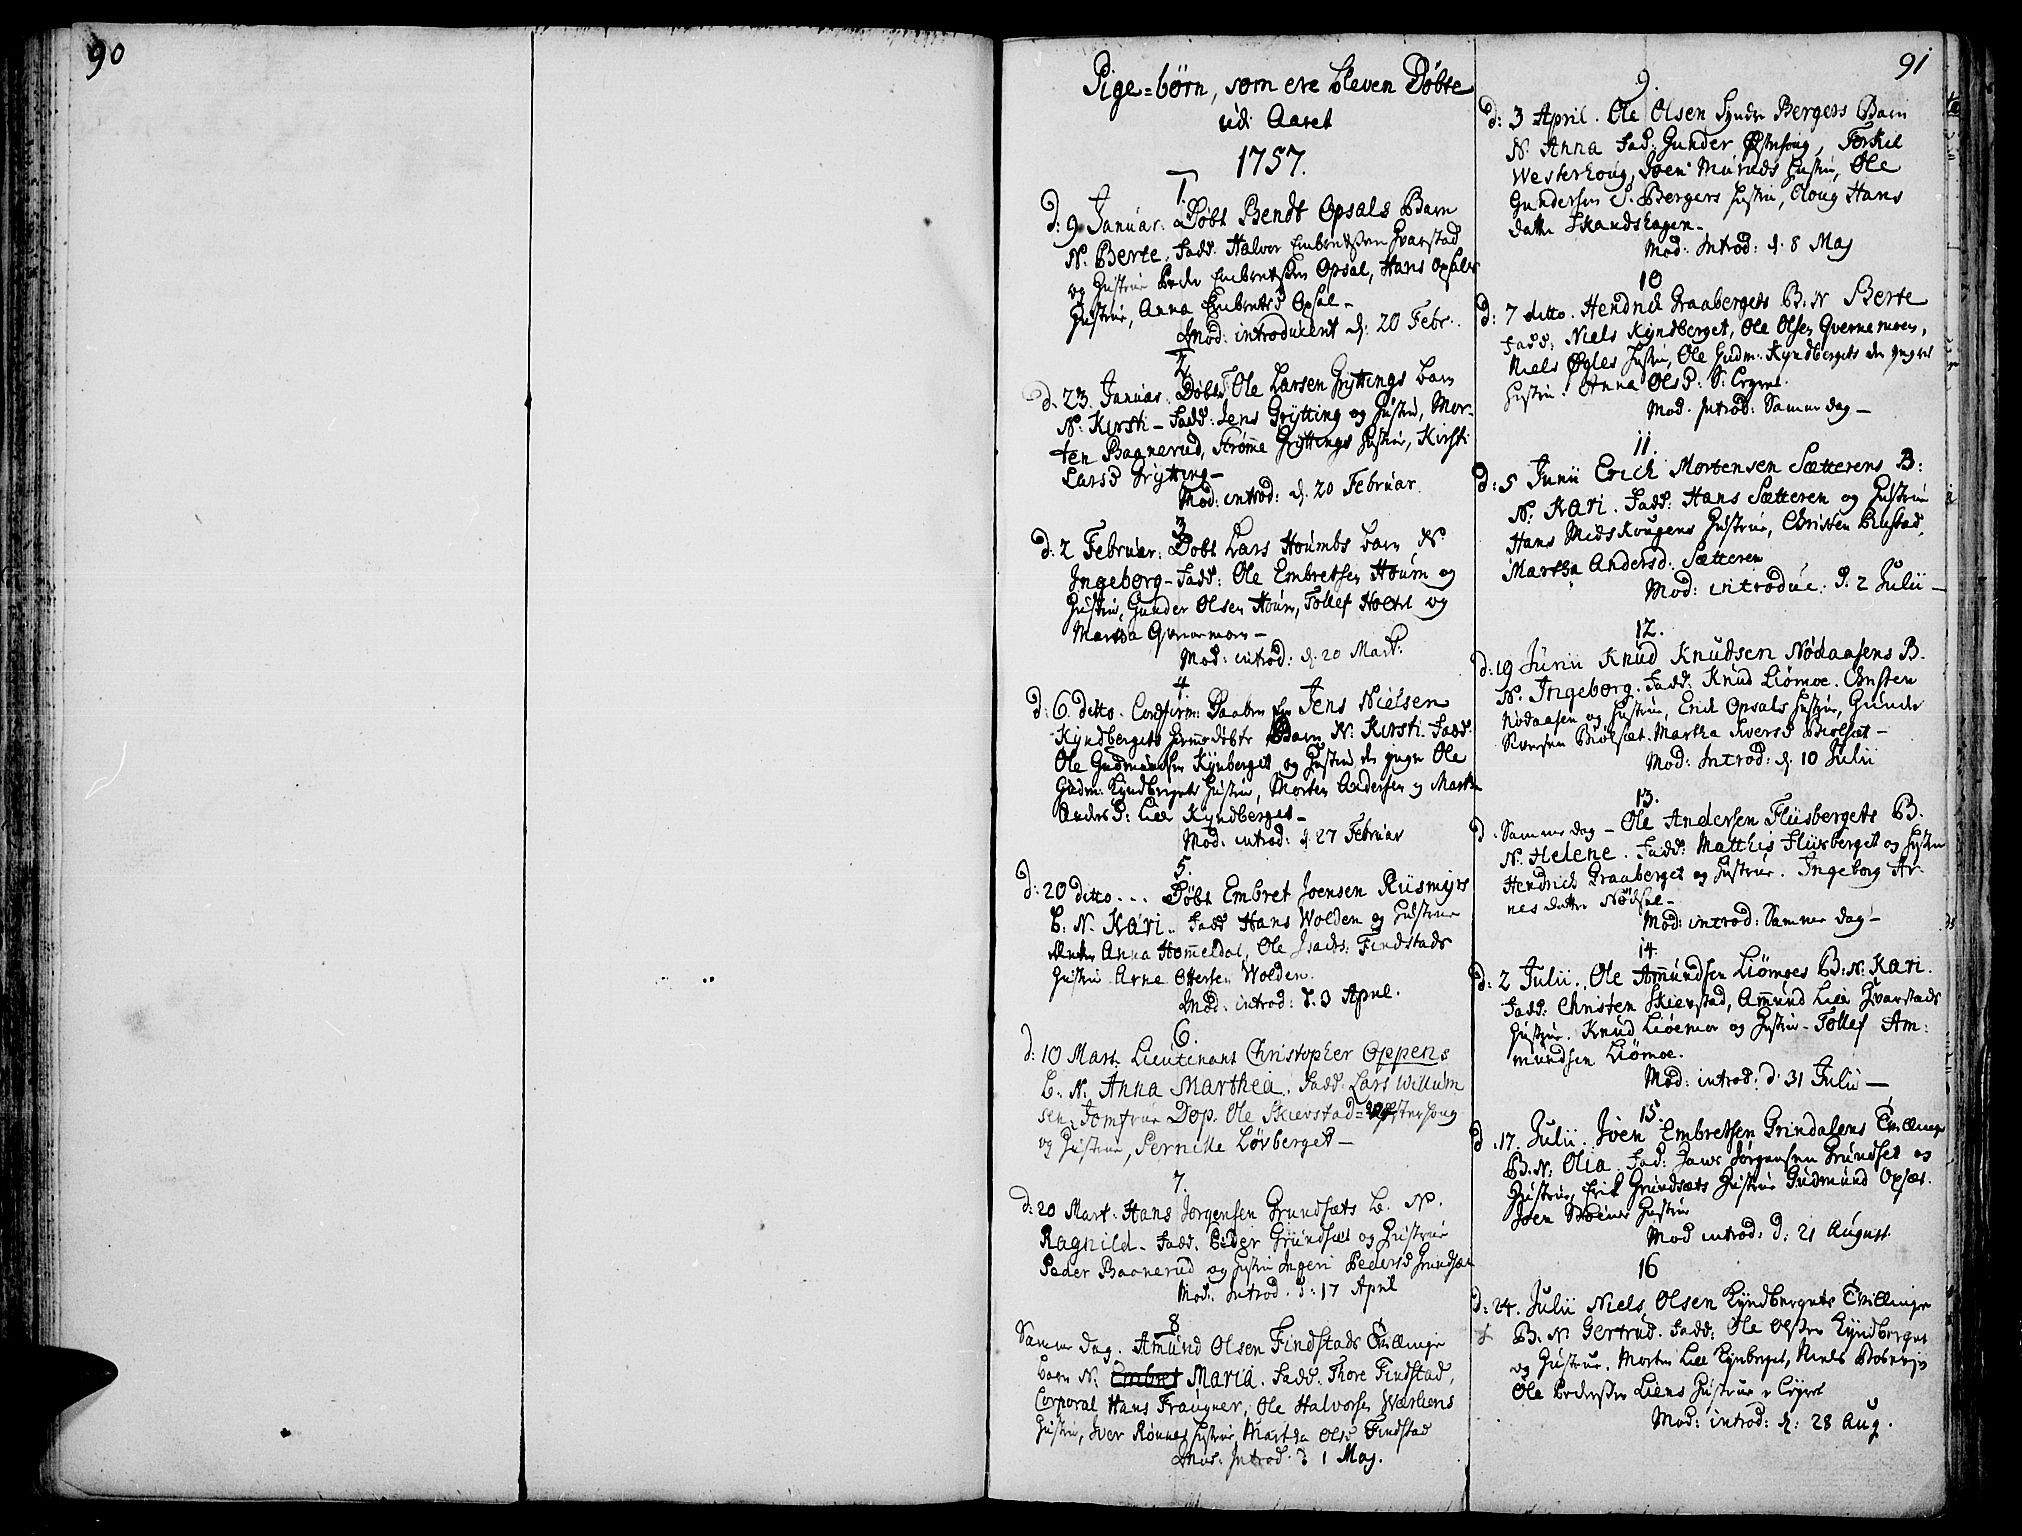 90
Pige-børn, som ere bleven Døbte
udi Aaret
1757.
1.
d: 9 Januar. Døbt Bendt Opsals Barn
N. Berte. Fadd: Halvor Embretsen Qvarstad
og Hustrue Peder Embretsen Opsal, Hans Opsals
Hustrue, Anna Embretsd Opsal-
Mod: introducent d: 20 Febr:
2.
d. 23. Januar. Døbt Ole Larsen Gryttings barn
N: Kirsti - Fadd: Jens Grytting og Hustru, Mor-
ten Bagnerud, Strømme Gryttings Hustrue, Kirsti
Larsd Grytting-
Mod: introd: d. 20 Februar.
3
d: 2 Februar: Døbt Lars Houmbs barn N
Ingeborg - Fadd: Ole Embretsen Houm og
Hustrue, Gunder Olsen Houm, Tollef Holtet og
Martha Qvernmoen-
Mod: introd: d. 20 Mart:
4.
d: 6. ditto. Confirm: Daaben for Jens Nielsen
Kyndbergets hiemmedøbte Barn N. Kirsti. Fadd:
Ole Gudmundsen Kynberget og Hustru den yngre Ole
Gudm: Kyndbergets Hustrue, Morten Andersen og Marthe
Andersd: Lille Kyndberget-
Mod: introd: d 27 Februar
5.
d: 20 ditto... Døbt Embret Joensen Riismyrs
b: N. Kari. Fadd Hans Wolden og Hustrue
Anna Hommeldal, Ole Isachs: Findstads
Hustru Arne Ottersen Wolden.
Mod: introd: d. 3 April.
6.
d: 10 Mart. Lieutenant Christopher Oppens
b. N. Anna Marthea. Fadd: Lars Willum
sen. Jomfrue Dop. Ole Skierstad Østerhoug
og Hustrue, Pernille Løvberget-
7.
d: 20 Mart. Hans Jørgensen Grundsæts b. N.
Ragnild. Fadd. Peder Grundset og Hustrue
Peder Baanerud og Hustru Ingeri Pedersd Grundsæt
Mod. Introd. d: 17 April
8
Samme Dag. Amund Olsen Findstads Tvillinge
barn N: Embret Maria. Fadd. Thore Findstad,
Corporal Hans Fraugner, Ole Halvorsen Wærliens
Hustru, Iver Rønnes Hustrue, Martha Olsd Findstad
Mod: Introd. d 1 Maj.
91
9.
d: 3 April. Ole Olsen Syndre Bergets Barn
N. Anna Fad: Gunder Østhoug, Torkil
Westerhoug, Joen Muruds Hustru, Ole
Gundersen S. Bergets Hustru, Oloug Hans
datter Skandshagen-
Mod: Introd: d. 8 Maj
10
d: 7 ditto. Hendrick Graabergets B: N Berte
Fadd: Niels Kyndberget, Ole Olsen Qvernemoen,
Niels Øgles Hustru, Ole Gudm: Kyndbergets den yngres
Hustru. Anna Olsd: S:
Mod. Introd: Samme dag-
11.
d: 5 Junii Erich Mortensen Sætterens B:
N: Kari. Fadd: Hans Sætteren og Hustrue
Hans Midskougens Hustrue, Christen Rustad,
Martha Andersd: Sætteren
Mod: introduc: d. 2 Julii-
12.
d: 19 Junii Knud Knudsen Nødaasens B.
N. Ingeborg. Fadd: Knud Liømoe. Christen
Nødaasen og Hustrue, Erick Opsals Hustrue, Gunder
Siversen Biølset. Martha Iversd Biølset-
Mod: Introd: d: 10 Julii
13.
d. Samme dag - Ole Andersen Fliisbergets B.
N. Helene. Fadd: Matthis Fliisberget og Hustru
Hendrich Graaberget og Hustrue. Ingeborg Ar-
nes datter Nødsel-
Mod: introd: Samme dag-
14.
d: 2 Julii. Ole Amundsen Liømoes B: N: Kari.
Fadd: Christen Skierstad, Amund Lille Qvarstads
Hustrue. Knud Liøemoe og Hustru - Tollef Am:
mundsen Liømoe.
Mod: introd: d. 31 Julii-
15.
d. 17. Julii. Joen Embretsen Grindalens Tvillinge
B: N: Olia. Fad: Hans Jørgensen Grundset og
Hustrue, Erik Grundsæts Hustrue Gudmund Opsæt.
Joen Hustrue
Mod introd: d: 21 August.
16
d: 24. Julii Niels Olsen Kyndbergets Tvillinge
B: N Gertrud. Fadd: Ole Olsen Kyndberget
og Hustrue. Morten Lille Kynberget, Niels
Ole Pedersen Liens Hustrue
Mod: introd: d: 28 Aug.